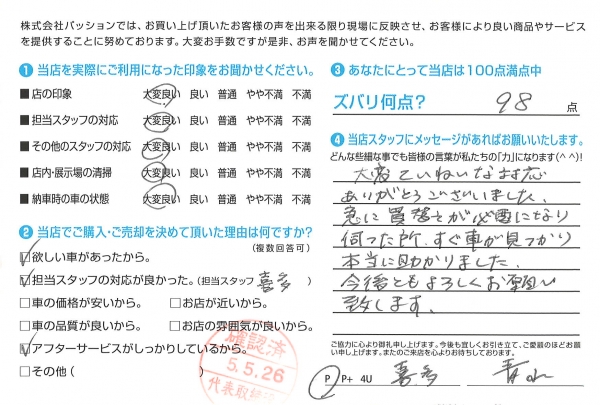 株式会社パッションでは、お買い上げ頂いたお客様の声を出来る限り現場に反映させ、お客様により良い商品やサービス
を提供することに努めております。大変お手数ですが是非、お声を聞かせてください。
1 当店を実際にご利用になった印象をお聞かせください。
■店の印象 大変良い 良い 普通 やや不満 不満
■担当スタッフの対応 大変良い 良い 普通 やや不満 不満
■その他のスタッフの対応 大変良い 良い 普通 やや不満 不満
■店内・展示場の清掃 大変良い 良い 普通 やや不満 不満
■納車時の車の状態 大変良い 良い 普通 やや不満 不満
2 当店でご購入・ご売却を決めて頂いた理由は何ですか?
(複数回答可)
☑欲しい車があったから。
☑担当スタッフの対応が良かった。(担当スタッフ 喜多 )
□車の価格が安いから。 □お店が近いから。
□車の品質が良いから。 □お店の雰囲気が良いから。
☑アフターサービスがしっかりしているから。
□その他 (
確認済
5.5.26
代表取締
3 あなたにとって当店は100点満点中
ズバリ何点? 98 点
4 当店スタッフにメッセージがあればお願いいたします。
どんな些細な事でも皆様の言葉が私たちの「力」になります(^^)!
大変ていねいな対応
ありがとうございました。
急に買替えが必要になり
伺った所、すぐ車が見つかり
本当に助かりました。
今後ともよろしくお願い
致します。
ご協力に心より御礼申し上げます。今後も宜しくお引き立て、ご愛顧のほどお願
い申し上げます。またのご来店を心よりお待ちしております。
P P+ 4U 喜多